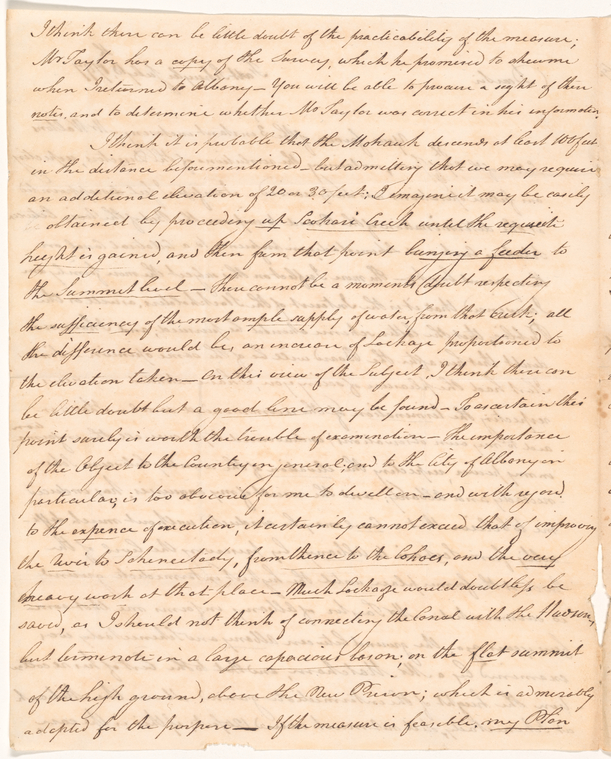 I think there can be little doubt of the practicability of the measure;
Mr. Taylor has a copy of the Survey, which he promised to shew me
when I returned to Albany — You will be able to procure a sight of these
notes, and to determine whether Mr Taylor was correct in his information.
I think it is probable that the Mohawk descends at least 100 feet
in the distance beforementioned — but admitting that we may require
an additional elevation of 20 or 30 feet; I imagine it may be easily
obtained by proceeding up Scoharie Creek until the requisite
height is gained, and then from that point bringing a feeder to
the Summit level — There cannot be a moments doubt respecting
the sufficiency of the most ample supply of water from that Creek; all
the difference would be, an increase of Lockage proportioned to
the elevation taken — On this view of the Subject, I think there can
be little doubt but a good line may be found — To ascertain this
point surely is worth the trouble of examination — The importance
of the Object to the Country in general, and to the City of Albany in
particular, is too obvious for me to dwell on — and with regard
to the expence of execution, it certainly cannot exceed that of improving
the River to Schenectady, from thence to the Cohoes, and the very
heavy work at that place — Much Lockage would doubtless be
saved, as I should not think of connecting the Canal with the Hudson,
but terminate in a large capacious bason, on the flat summit
of the high ground, above the New Prison; which is admirably
adapted for the purpose — If the measure is feasible, my Plan